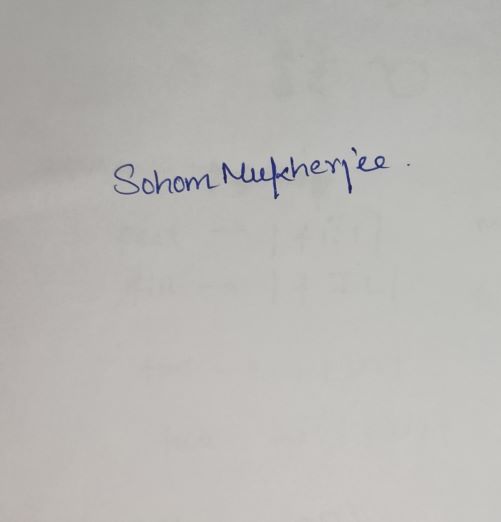 Sohom Mukherjee.